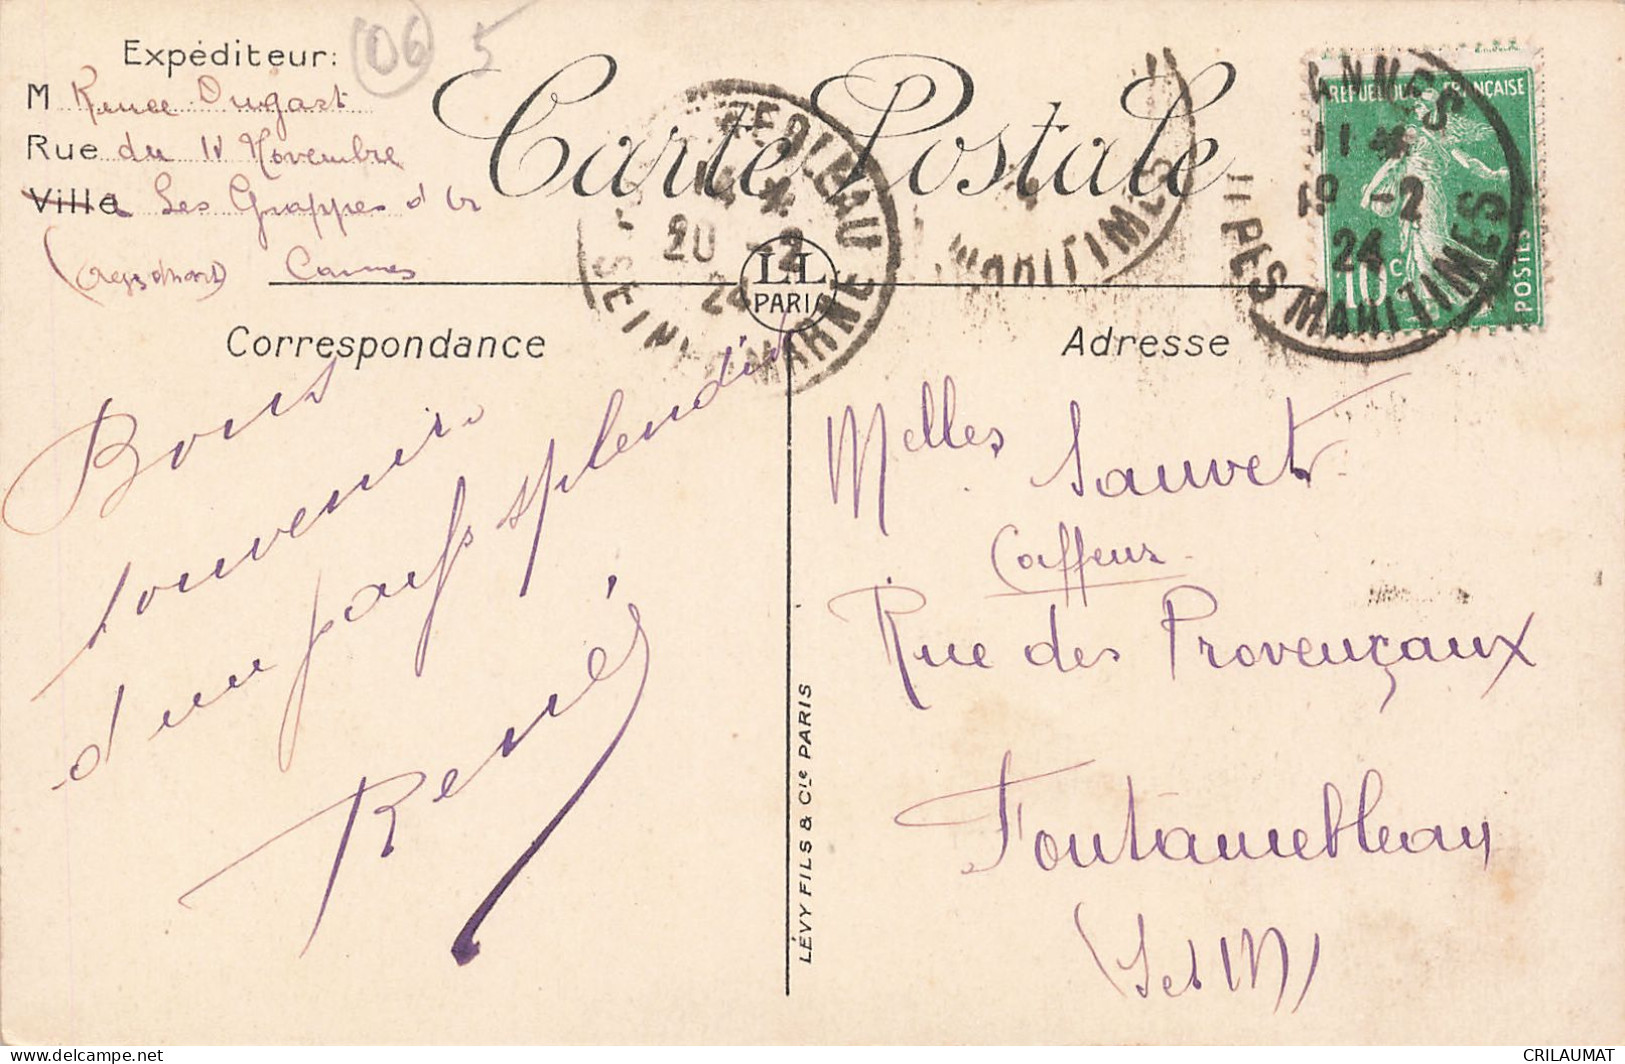 06 5
Carte Postale
Expéditeur:
M Renee Dugast
Rue du 11 Novembre
Villa Les Grappes d'Or
Cannes
Correspondance
Bons
souvenirs
d'un pays splendide
Renée
LL
PARIS
LÉVY FILS & Cie PARIS
RÉPUBLIQUE FRANÇAISE
10 c
POSTES
CANNES
11
19 -2
24
ALPES MARITIMES
MARITIMES
FONTAINEBLEAU
20 -2
24
SEINE & MARNE
Adresse
Melles Sauvet
Coiffeur
Rue des Provençaux
Fontainebleau
(S et M)
CRILAUMAT